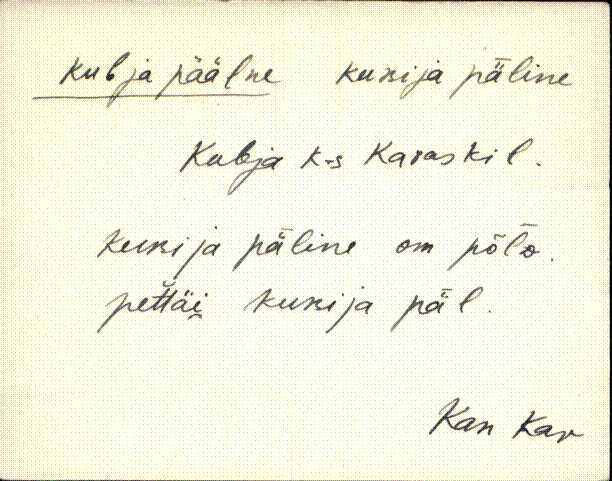 kubja päälne kurija päline
Kubja k-s Karaskil.
kurija päline om põlo.
pettäi kurija päl.
Kan Kar